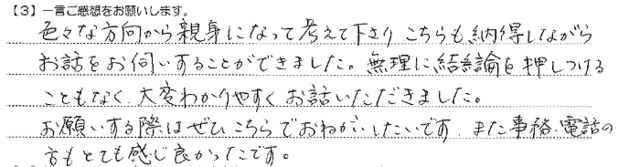 【3】一言ご感想をお願いします。
色々な方向から親身になって考えて下さり こちらも納得しながら
お話をお伺いすることができました。無理に結論を押しつける
こともなく、大変わかりやすく お話いただきました。
お願いする際はぜひこちらでおねがいしたいです。また事務、電話の
方もとても感じ良かったです。